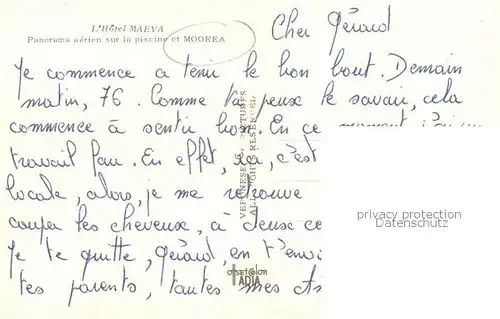 L'Hôtel MAEVA
Panorama aérien sur la piscine et MOOREA
Cher Gérard
Je commence a tenir le bon bout. Demain
matin, 76. Comme tu peux le savoir, cela
commence à sentir bon. En ce moment j'ai
travail fou. En effet, ici, c'est
locale, alors, je me retrouve
couper les cheveux, à deux ce
Je te quitte, Gérard, en t'envo
tes parents, toutes mes
privacy protection
Datenschutz
offset@lon
ADIA